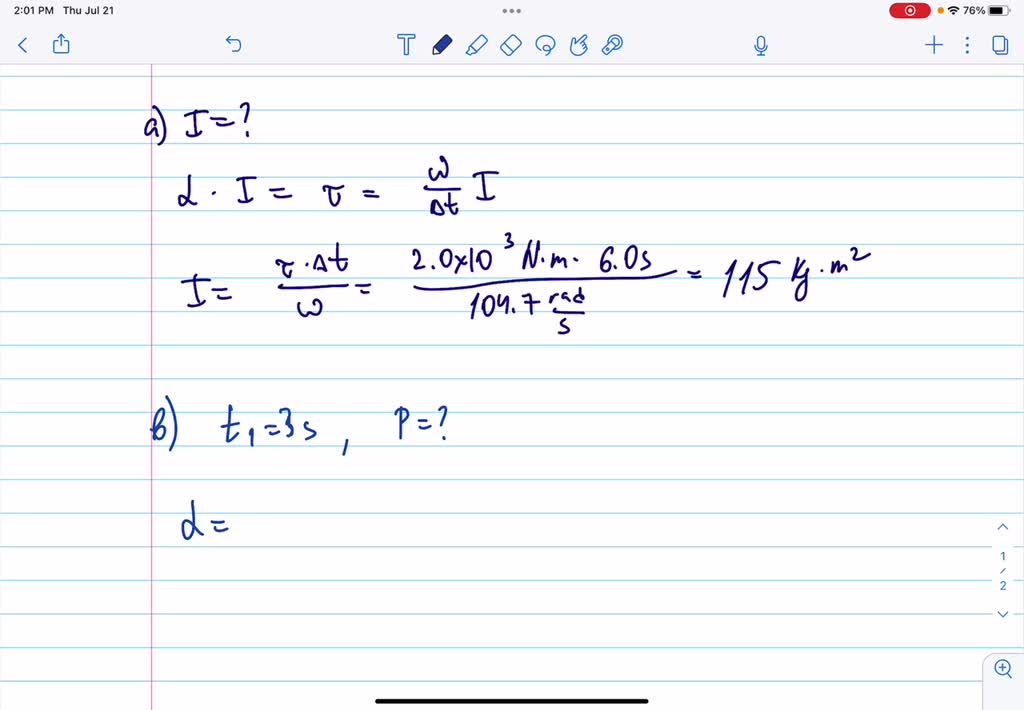 2:01 PM Thu Jul 21 76%
a) I=?
α · I = τ = ω/Δt I
I= τ·Δt/ω = 2.0x10³ N·m· 6.0s / 104.7 rad/s = 115 kg·m²
b) t₁=3s, P=?
α=
1
/
2